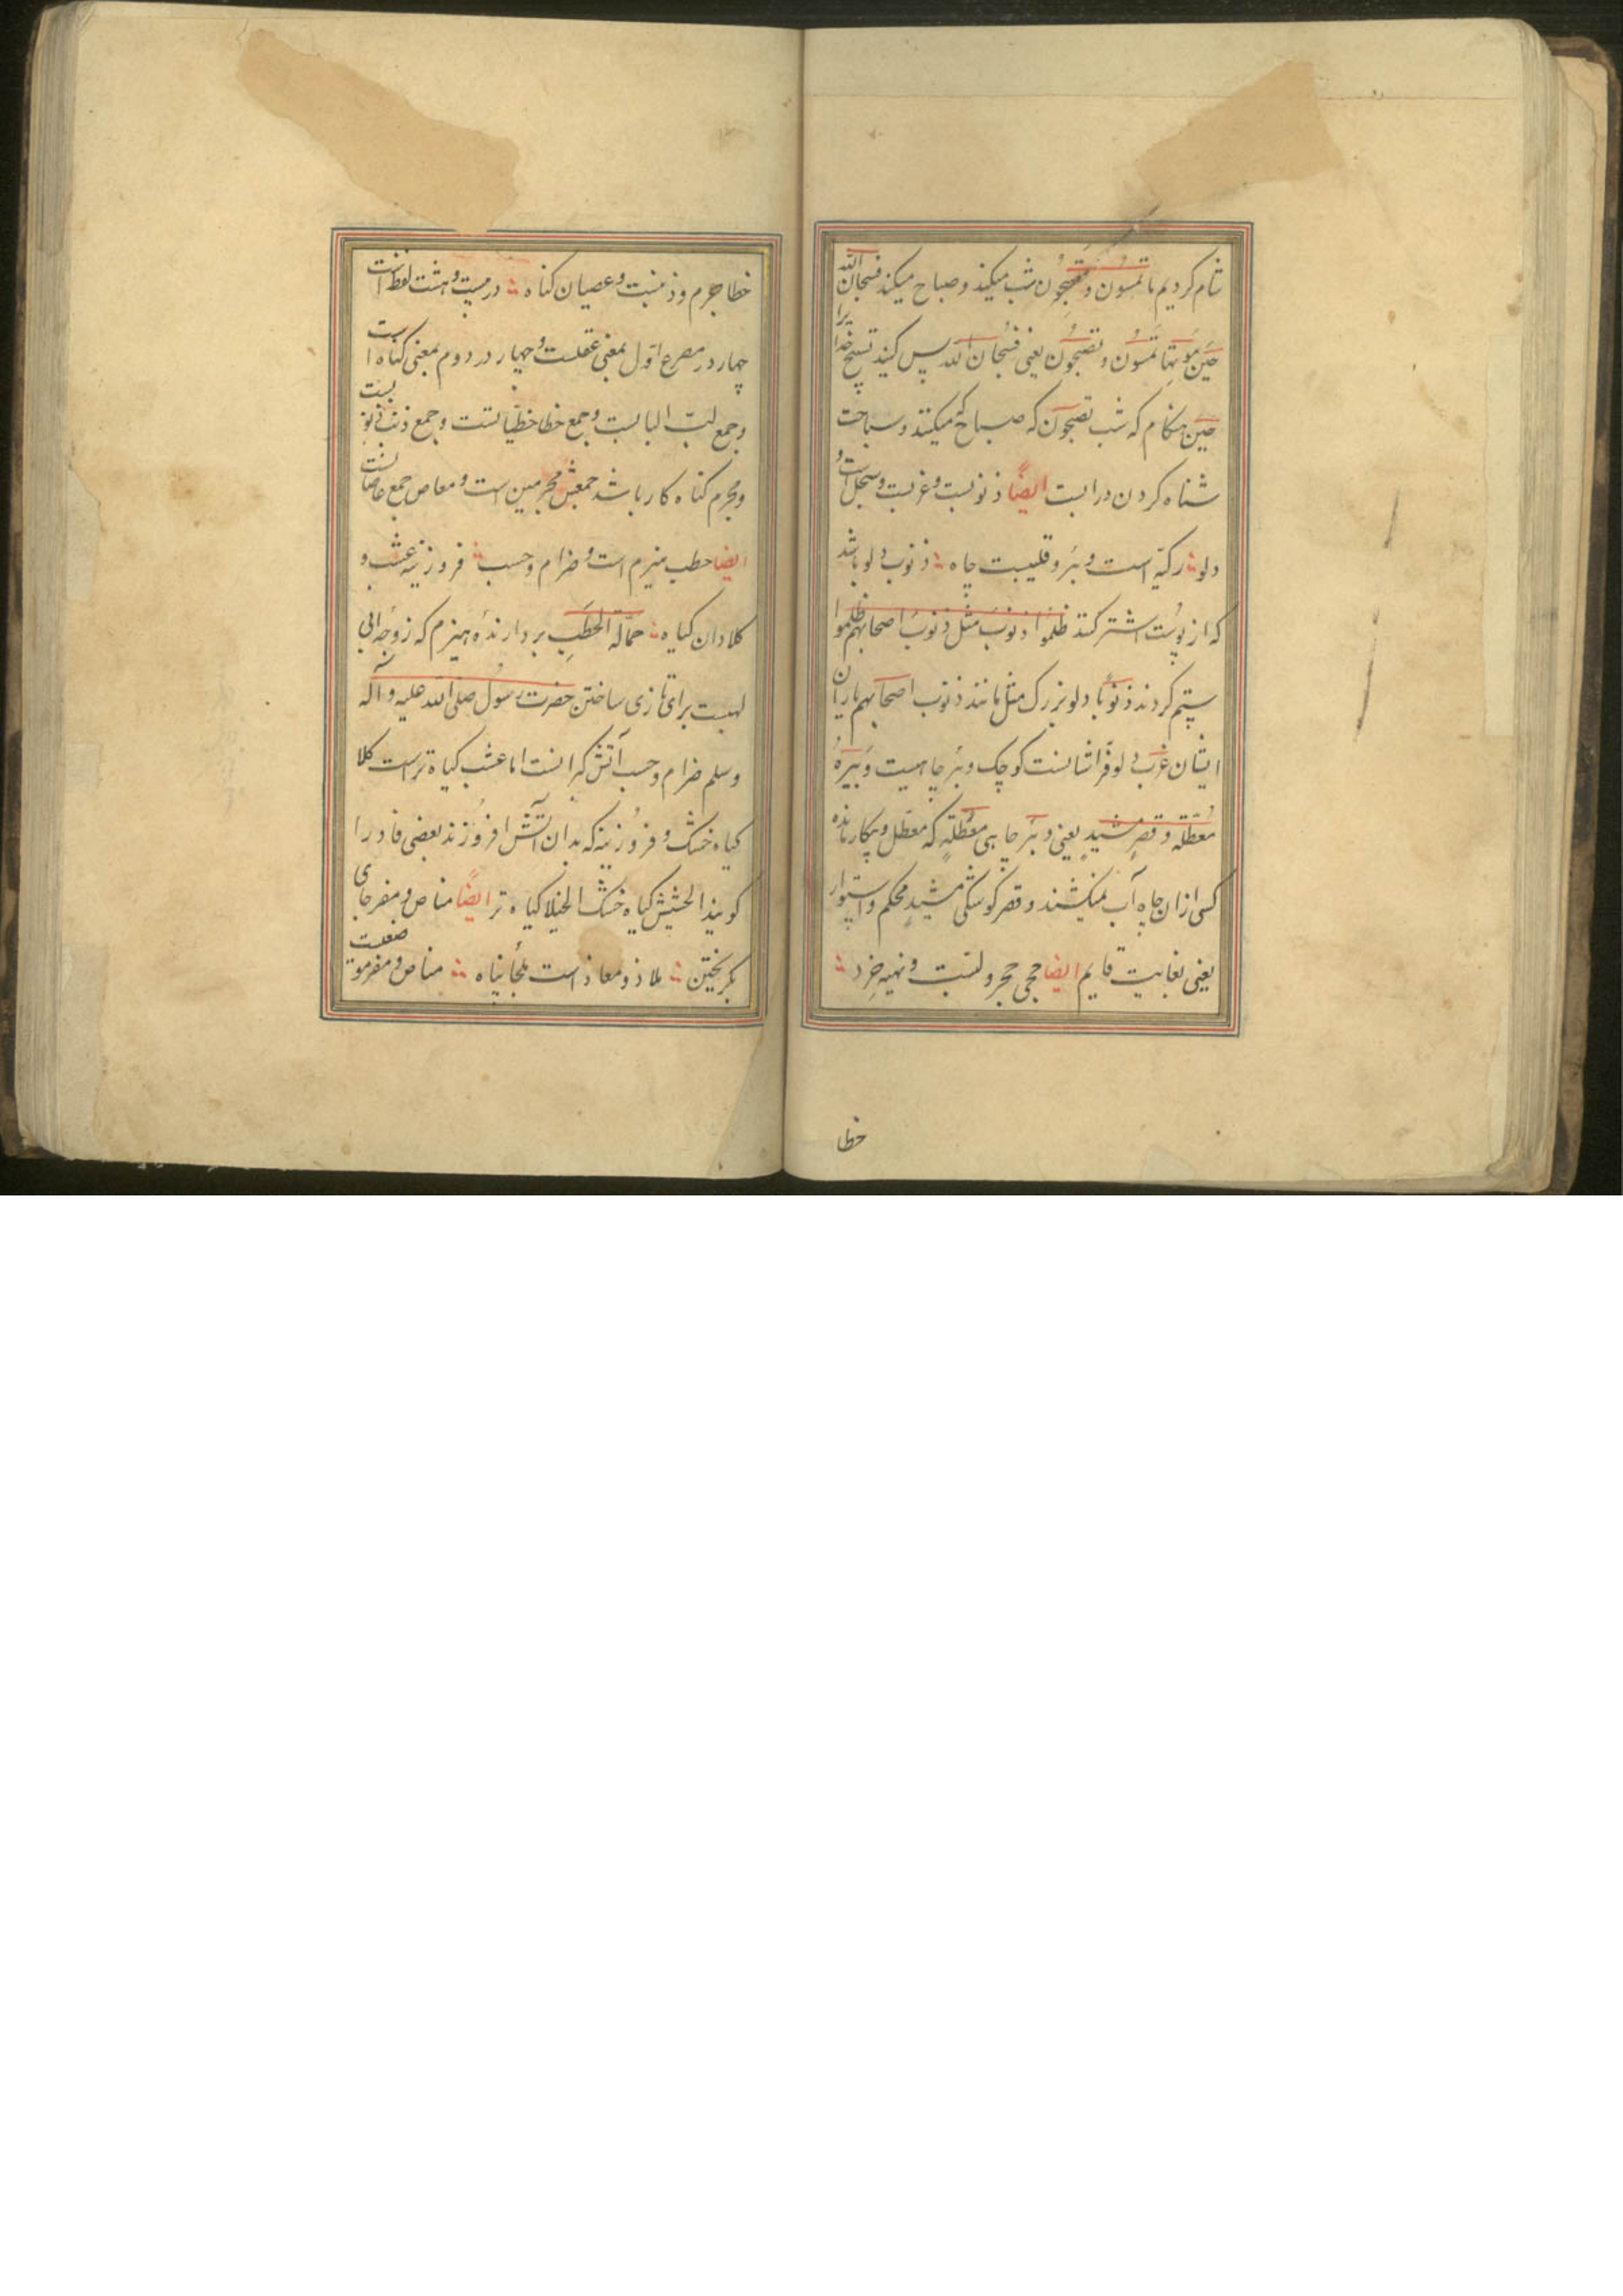 شام کردیم ما تمسون و تصبحون شب میکنید و صباح میکنید فسبحان الله
حین تمسون و تصبحون یعنی فسبحان الله پس کنید تسبیح خدا یرا
حین هنکام که شب تصبحون که صباح میکنند و سباحت
شناه کردن در ابست ایضاً ذنوبست و غربست و سجل است و
دلو رکیّه است و بئر و قلیبست چاه ذنوب دلو باشد
که از پوست اشتر کنند ظلموا ذنوب مثل ذنوب اصحابهم ظلموا
ستم کردند ذنوبا دلو بزرک مثل مانند ذنوب اصحابهم یاران
ایشان غرب دلو فراشانست کوچک و بئر چاهیست و بیره
معطّلة و قصر مشید یعنی و بئر چاهی معطّلة که معطّل و بیکار مانده
کسی ازان چاه آب نمیکشند و قصر کوشکی مشید محکم و استوار
یعنی بغایت قایم ایضا حجی حجر و لبّست و نهیه خرد
خطا
خطا جرم و ذنبست و عصیان کناه در بیت و هشت لفظ است
چهار در مصرع اوّل بمعنی عقلست و چهار در دوم بمعنی کناه است
و جمع لبّ البابست و جمع خطا خطیّاتست و جمع ذنب ذنوبست
و مجرم کناه کار باشد جمعش مجرمین است و معاص جمع
ایضا حطب هیزم است و ضرام و حسب فروزینه عشب و
کلا دان کیاه حمّالة الحطب بردارندهٔ هیزم که زوجه ابی
لهبست برای حضرت رسول صلی الله علیه و آله
و سلم ضرام و حسب آتش کیرانست اما عشب کیاه تر است کلا
کیاه خشک و فروزینه که بدان آتش افروزند بعضی
کویند الحشیش کیاه خشک الخلا کیاه تر ایضاً مناص و مفر جای
بکریختن ملاذ و معاذ است ملجأ پناه مناص و مفر